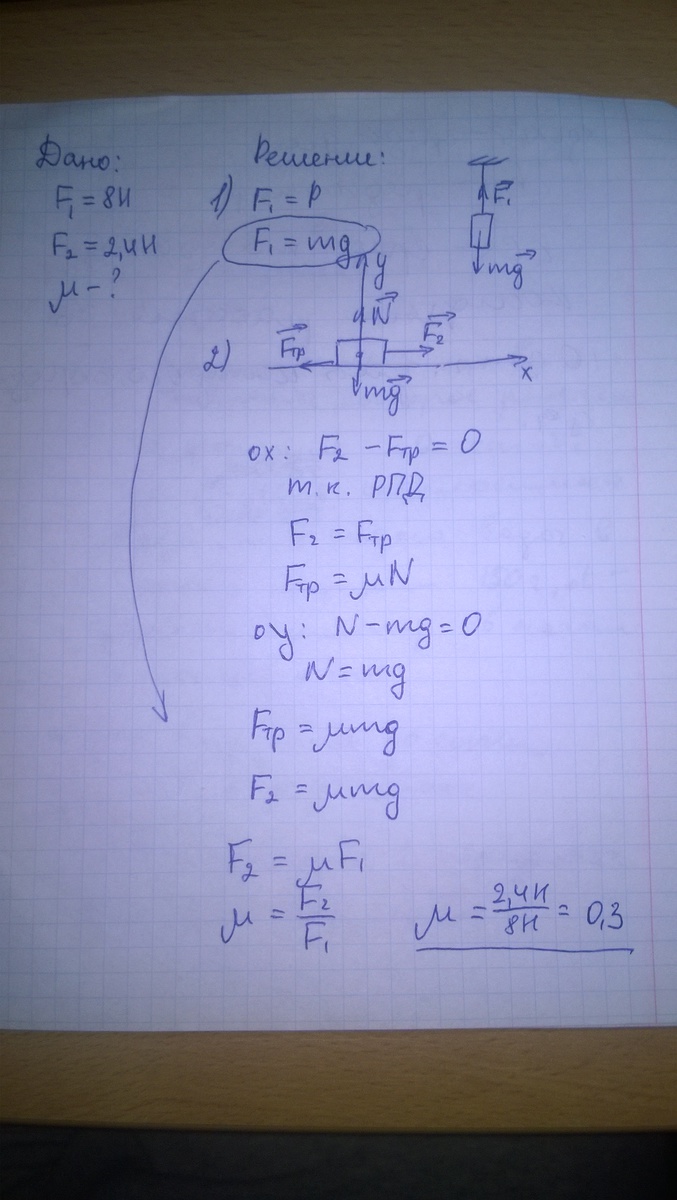 Дано:
F₁ = 8Н
F₂ = 2,4Н
μ - ?
Решение:
1) F₁ = P
F₁ = mg
F₁
mg
2)
y
N
Fтр
F₂
x
mg
ox: F₂ - Fтр = 0
т.к. РПД
F₂ = Fтр
Fтр = μN
oy: N - mg = 0
N = mg
Fтр = μmg
F₂ = μmg
F₂ = μF₁
μ = F₂/F₁
μ = 2,4Н/8Н = 0,3